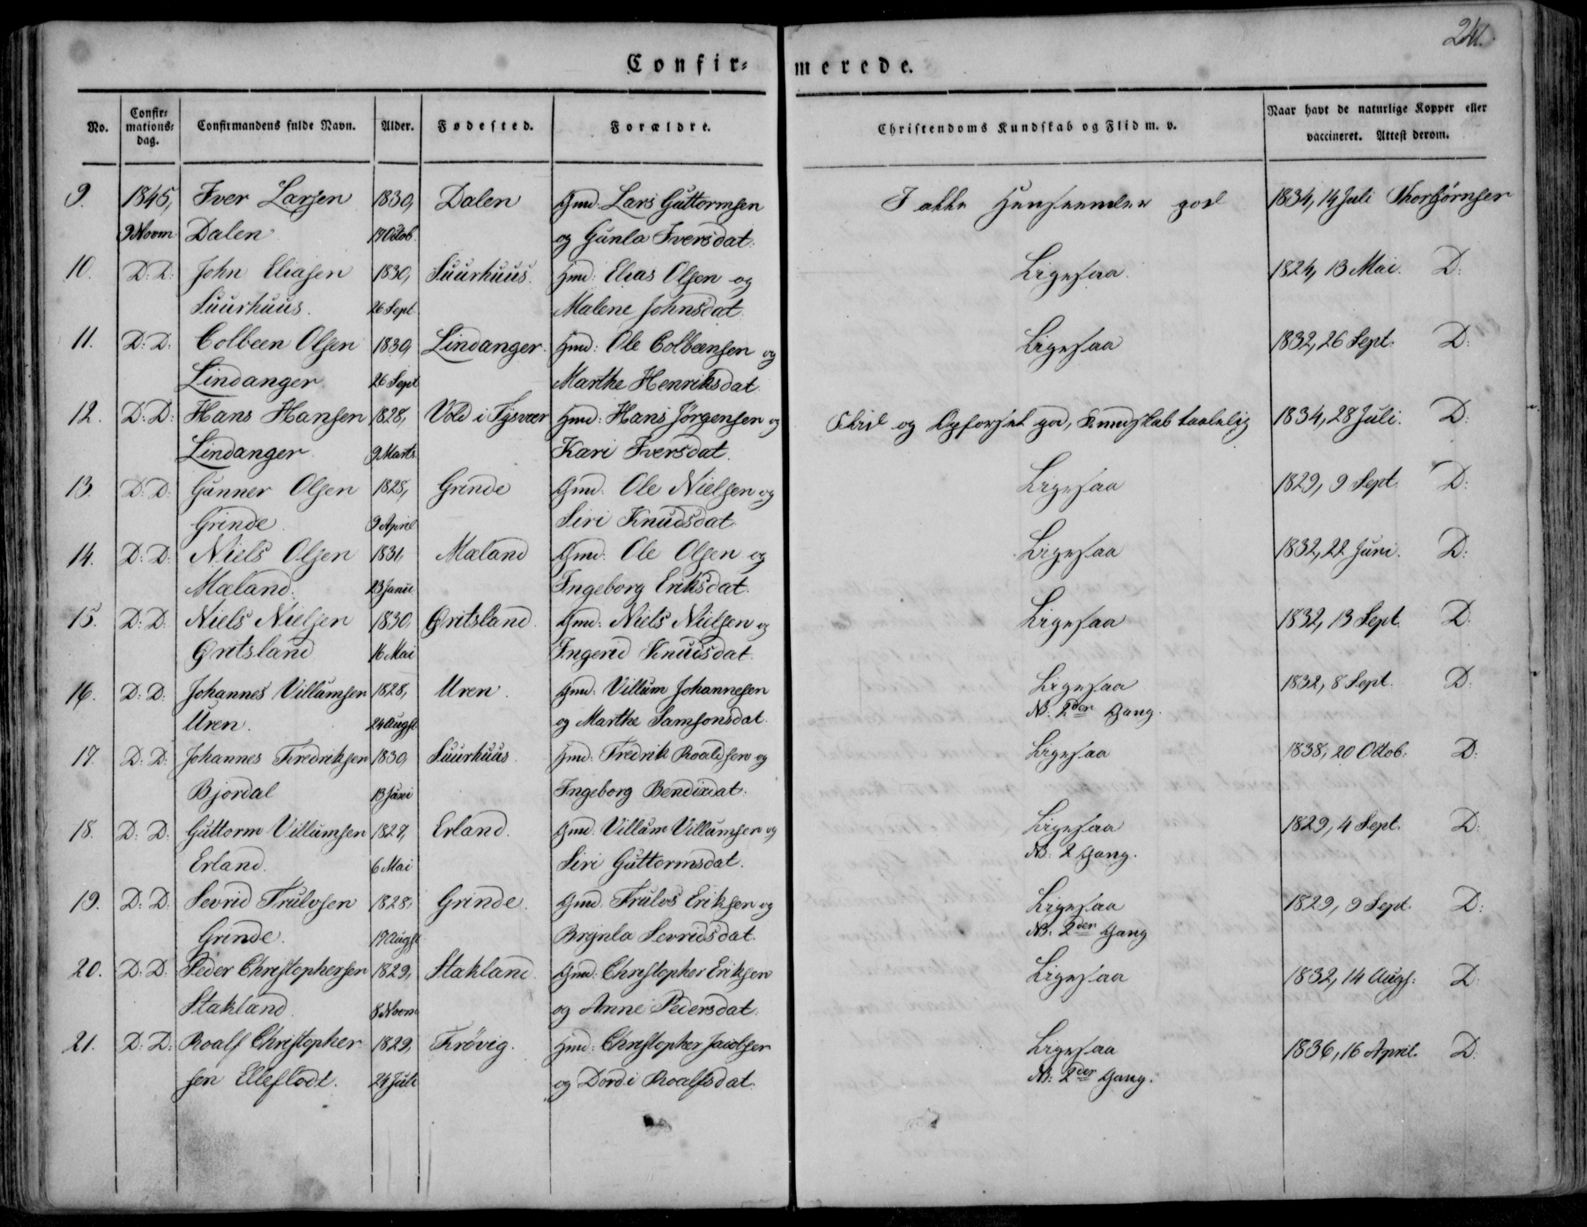 241.
Confir=
merede.
No.
Confir=
mations=
dag.
Confirmandens fulde Navn.
Alder.
Fødested.
Forældre.
Christendoms Kundskab og Flid m. v.
Naar havt de naturlige Kopper eller
vaccineret. Attest derom.
9. 1845, Iver Larsen 1830, Dalen Gmd. Lars Guttormsen I alle Henseender god 1834, 14 Juli Thorbjørnsen
9 Novm Dalen 17 Octob og Gunla Iversdat.
10. D: D: John Eliasen 1830, Suurhuus. Hmd: Elias Olsen og Ligesaa. 1824, 13 Mai. D:
Suurhuus. 26 Sept Malene Johnsdat.
11. D: D: Colbeen Olsen 1830, Lindanger. Hmd: Ole Colbeensen og Ligesaa 1832, 26 Sept. D:
Lindanger 26 Sept Marthe Henriksdat.
12. D: D: Hans Hansen 1828, Vold i Tysvær Hmd: Hans Jørgensen og Flid og Opførsel god, Kundskab taalelig 1834, 28 Juli. D:
Lindanger. 9 Marts Kari Iversdat.
13. D: D: Gunner Olsen 1828, Grinde Gmd. Ole Nielsen og Ligesaa 1829, 9 Sept. D:
Grinde. 9 April Siri Knudsdat.
14. D: D: Niels Olsen 1831 Mæland Gmd. Ole Olsen og Ligesaa 1832, 22 Juni. D:
Mæland. 23 Janu Ingeborg Eriksdat.
15. D: D: Niels Nielsen 1830 Gritsland. Gmd. Niels Nielsen og Ligesaa 1832, 13 Sept. D:
Gritsland 16 Mai Ingerid Knudsdat.
16. D: D: Johannes Villumsen 1828, Uren. Hmd. Villum Johannesen Ligesaa 1832, 8 Sept. D:
Uren. 24 Augst og Marthe Samsonsdat. NB. 2den Gang.
17. D: D: Johannes Fredriksen 1830, Suurhuus. Hmd: Fredrik Roaldsen og Ligesaa 1838, 20 Octob. D:
Bjordal 13 Juni Ingeborg Bendixdat.
18. D: D: Guttorm Villumsen 1828, Erland. Gmd. Villum Villumsen og Ligesaa 1829, 4 Sept. D:
Erland. 6 Mai Siri Guttormsdat. NB. 2 Gang.
19. D: D: Sevrid Trulssen 1828, Grinde. Gmd. Truls Eriksen og Ligesaa 1829, 9 Sept. D:
Grinde. 19 Augst Brynla Sevridsdat. NB. 2den Gang
20. D: D: Peder Christophersen 1829, Stakland. Gmd. Christopher Eriksen Ligesaa 1832, 14 Augs. D:
Stakland 8 Novm og Anne Pedersdat.
21. D: D: Roalf Christopher 1829, Frøvig. Hmd: Christopher Jacobsen Ligesaa 1836, 16 April. D:
sen Elleflodt. 24 Juli og Dordi Roalfsdat. NB: 2den Gang.